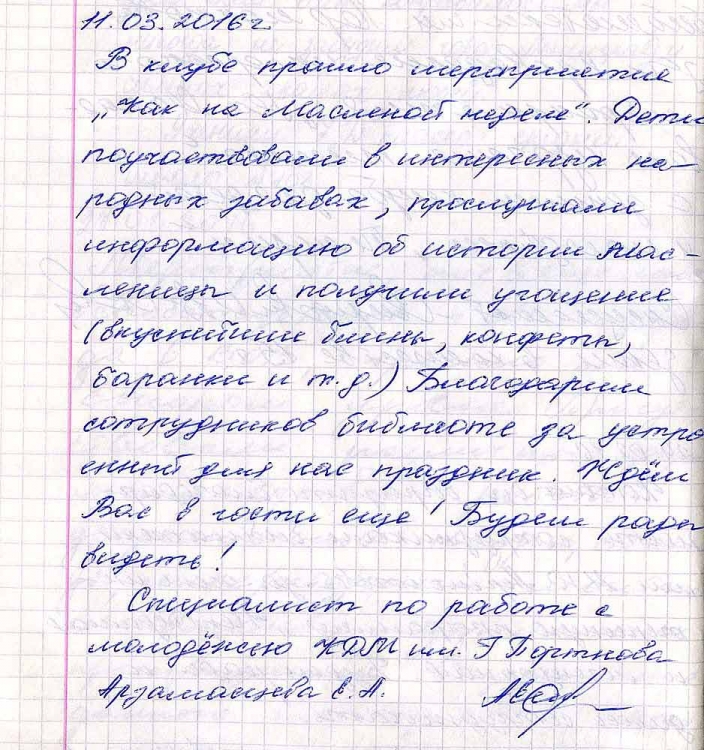 11.03.2016г.
В клубе прошло мероприятие
„Как на Масленой неделе". Дети
поучаствовали в интересных на-
родных забавах, прослушали
информацию об истории Мас-
леницы и получили угощение
(вкуснейшие блины, конфеты,
баранки и т.д.) Благодарим
сотрудников библиоте за устро
енный для нас праздник. Ждём
Вас в гости еще! Будем рады
видеть!
Специалист по работе с
молодёжью КДМ им. Г Портнова
Арзамасцева Е.А.